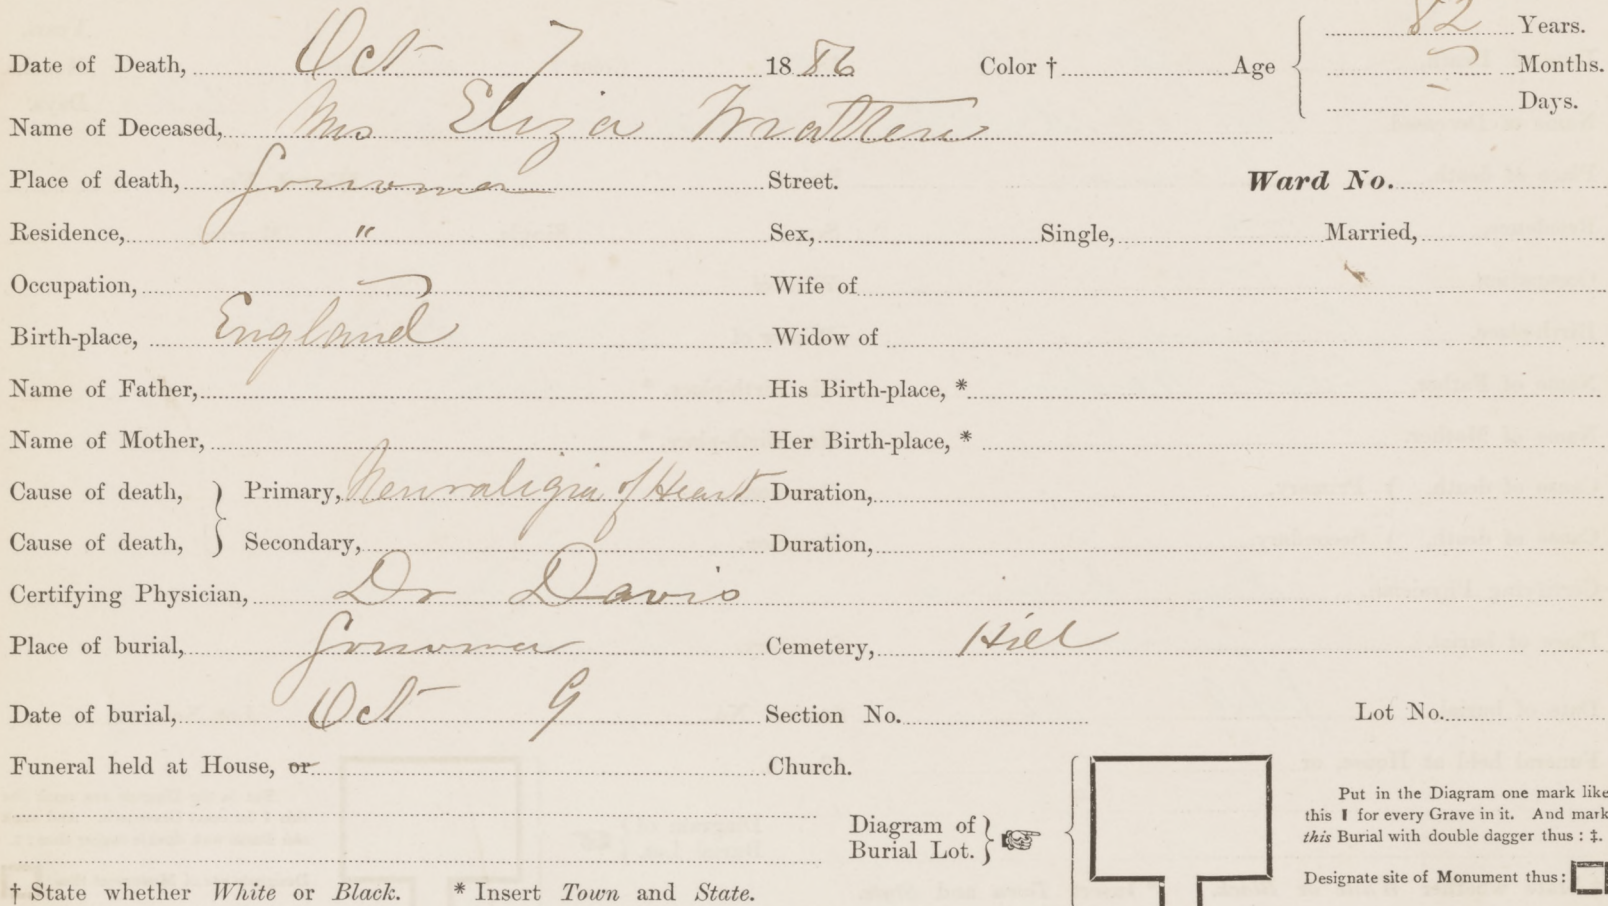 82 Years.
Date of Death, Oct 7 1886 Color † Age Months.
Days.
Name of Deceased, Mrs Eliza
Place of death, Sonoma Street. Ward No.
Residence, " Sex, Single, Married,
Occupation, Wife of
Birth-place, England Widow of
Name of Father, His Birth-place, *
Name of Mother, Her Birth-place, *
Cause of death, Primary, Neuraligia of Heart Duration,
Cause of death, Secondary, Duration,
Certifying Physician, Dr Davis
Place of burial, Sonoma Cemetery, Hill
Date of burial, Oct 9 Section No. Lot No.
Funeral held at House, or Church.
Diagram of
Burial Lot.
Put in the Diagram one mark like
this ❙ for every Grave in it. And mark
this Burial with double dagger thus : ‡.
Designate site of Monument thus :
† State whether White or Black. * Insert Town and State.